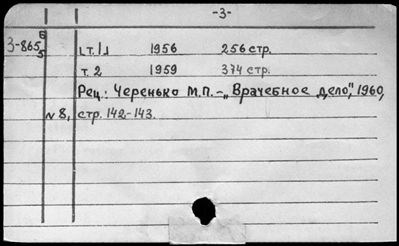 -3-
З-865 6/5 [т.1] 1956 256 стр.
т. 2 1959 374 стр.
Рец.: Черенько М.П. - „Врачебное дело", 1960,
N 8, стр. 142-143.